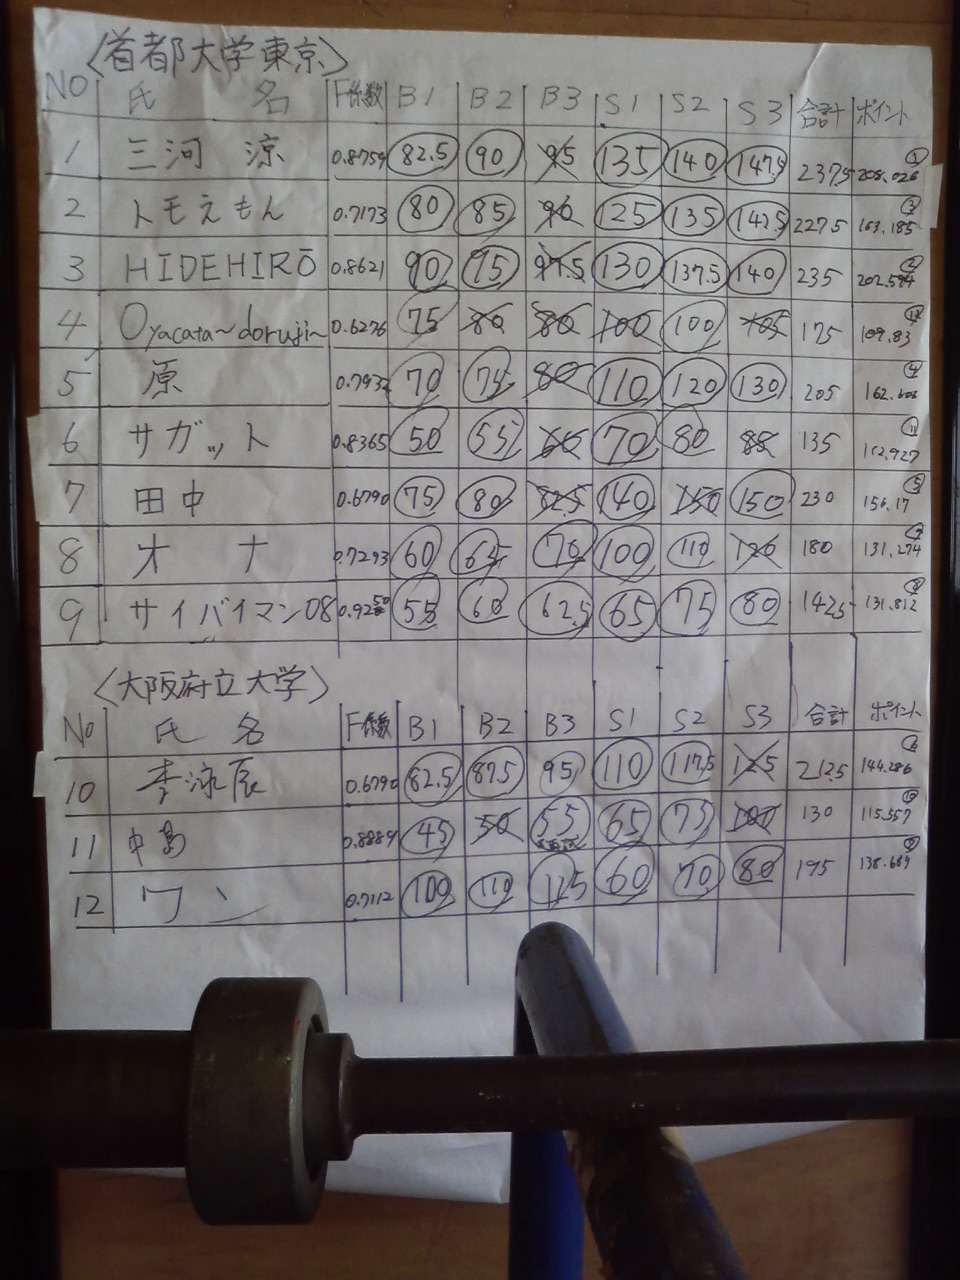 〈首都大学東京〉
NO 氏 名 F係数 B1 B2 B3 S1 S2 S3 合計 ポイント
1 三河 涼 0.8759 82.5 90 95 135 140 147.5 237.5 208.026 ①
2 トモえもん 0.7173 80 85 90 125 135 142.5 227.5 163.185 ③
3 HIDEHIRŌ 0.8621 90 95 97.5 130 137.5 140 235 202.594 ②
4 Oyacata〜doruji〜 0.6276 75 80 80 100 100 105 175 109.83 ⑫
5 原 0.7932 70 75 80 110 120 130 205 162.606 ④
6 サガット 0.8365 50 55 60 70 80 85 135 112.927 ⑪
7 田中 0.6790 75 80 82.5 140 150 150 230 156.17 ⑤
8 オナ 0.7293 60 65 70 100 110 120 180 131.274 ⑨
9 サイバイマン08 0.9250 55 60 62.5 65 75 80 142.5 131.812 ⑧
〈大阪府立大学〉
No 氏 名 F係数 B1 B2 B3 S1 S2 S3 合計 ポイント
10 李泳辰 0.6790 82.5 87.5 95 110 117.5 125 212.5 144.286 ⑥
11 中島 0.8889 45 50 55 65 75 100 130 115.557 ⑩
12 ワン 0.7112 100 110 115 60 70 80 195 138.689 ⑦